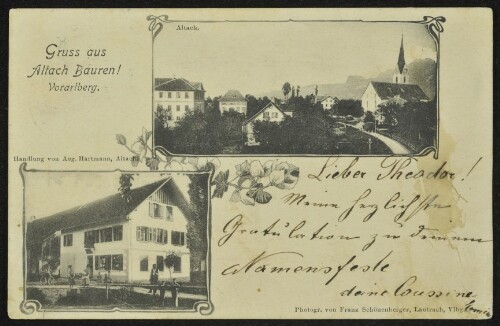 Gruss aus
Altach Bauren!
Vorarlberg.
Altach.
Handlung von Aug. Hartmann, Altach.
Lieber Theodor!
Meine herzlichste
Gratulation zu deinem
Namensfeste
deine Cousine
Photogr. von Franz Schönenberger, Lautrach, Vlbg.